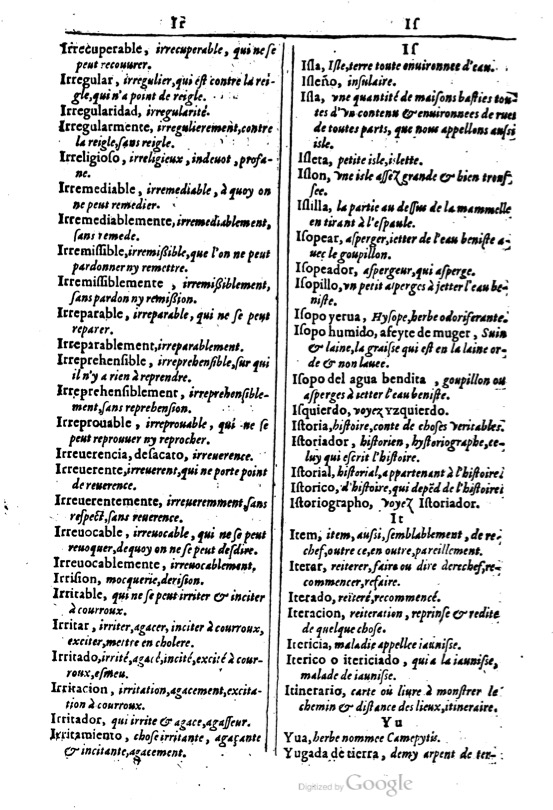 Ir
Irrecuperable, irrecuperable, qui ne se
peut recouurer.
Irregular, irregulier, qui est contre la rei-
gle, qui n'a point de reigle.
Irregularidad, irregularité.
Irregularmente, irregulierement, contre
la reigle, sans reigle.
Irreligioso, irreligieux, indeuot, profa-
ne.
Irremediable, irremediable, à quoy on
ne peut remedier.
Irremediablemente, irremediablement,
sans remede.
Irremissible, irremißible, que l'on ne peut
pardonner ny remettre.
Irremissiblemente, irremißiblement,
sans pardon ny remißion.
Irreparable, irreparable, qui ne se peut
reparer.
Irreparablement, irreparablement.
Irreprehensible, irreprehensible, sur qui
il n'y a rien à reprendre.
Irreprehensiblement, irreprehensible-
ment, sans reprehension.
Irreprouable, irreprouable, qui ne se
peut reprouuer ny reprocher.
Irreuerencia, desacato, irreuerence.
Irreuerente, irreuerent, qui ne porte point
de reuerence.
Irreuerentemente, irreueremment, sans
respect, sans reuerence.
Irreuocable, irreuocable, qui ne se peut
reuoquer, dequoy on ne se peut desdire.
Irreuocablemente, irreuocablement.
Irrision, mocquerie, derision.
Irritable, qui ne se peut irriter & inciter
à courroux.
Irritar, irriter, agacer, inciter à courroux,
exciter, mettre en cholere.
Irritado, irrité, agacé, incité, excité à cour-
roux, esmeu.
Irritacion, irritation, agacement, excita-
tion à courroux.
Irritador, qui irrite & agace, agasseur.
Irritamiento, chose irritante, agaçante
& incitante, agacement.
Is
Is
Isla, Isle, terre toute enuironnee d'eau.
Isleño, insulaire.
Isla, vne quantité de maisons basties tou-
tes d'vn contenu & enuironnees de rues
de toutes parts, que nous appellons aussi
isle.
Isleta, petite isle, islette.
Islon, vne isle assez grande & bien trous-
see.
Islilla, la partie au dessus de la mammelle
en tirant à l'espaule.
Isopear, asperger, ietter de l'eau beniste a-
uec le goupillon.
Isopeador, aspergeur, qui asperge.
Isopillo, vn petit asperges à jetter l'eau be-
niste.
Isopo yerua, Hysope, herbe odoriferante.
Isopo humido, afeyte de muger, Suin
& laine, la graisse qui est en la laine or-
de & non lauee.
Isopo del agua bendita, goupillon ou
asperges à ietter l'eau beniste.
Isquierdo, voyez Yzquierdo.
Istoria, histoire, conte de choses veritables.
Istoriador, historien, hystoriographe, ce-
luy qui escrit l'histoire.
Istorial, historial, appartenant à l'histoire.
Istorico, d'histoire, qui depẽd de l'histoire.
Istoriographo, voyez Istoriador.
It
Item, item, aussi, semblablement, de re-
chef, outre ce, en outre, pareillement.
Iterar, reiterer, faire ou dire derechef, re-
commencer, refaire.
Iterado, reïteré, recommencé.
Iteracion, reiteration, reprinse & redite
de quelque chose.
Itericia, maladie appellee iaunisse.
Iterico o itericiado, qui a la iaunisse,
malade de iaunisse.
Itinerario, carte ou liure à monstrer le
chemin & distance des lieux, itineraire.
Yu
Yua, herbe nommee Camepytis.
Yugada de tierra, demy arpent de ter-
Digitized by Google